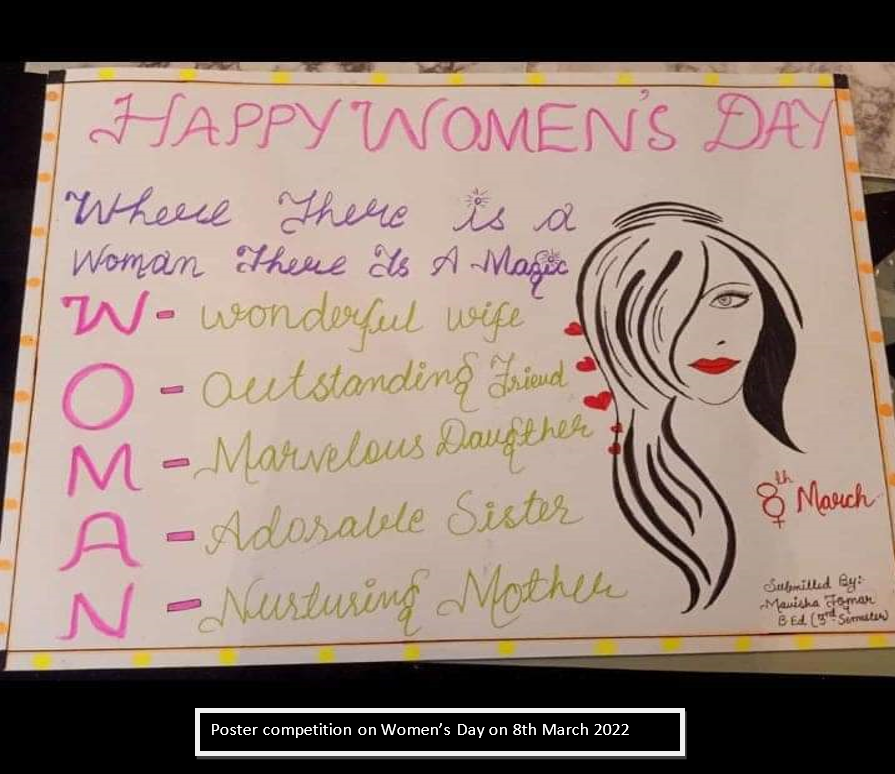 HAPPY WOMEN'S DAY
Where There is a
Woman There Is A Magic
W - wonderful wife
O - Outstanding Friend
M - Marvelous Daughter
A - Adorable Sister
N - Nurturing Mother
8th March
Submitted By:-
Manisha Tomar
B Ed (3rd Semester)
Poster competition on Women's Day on 8th March 2022